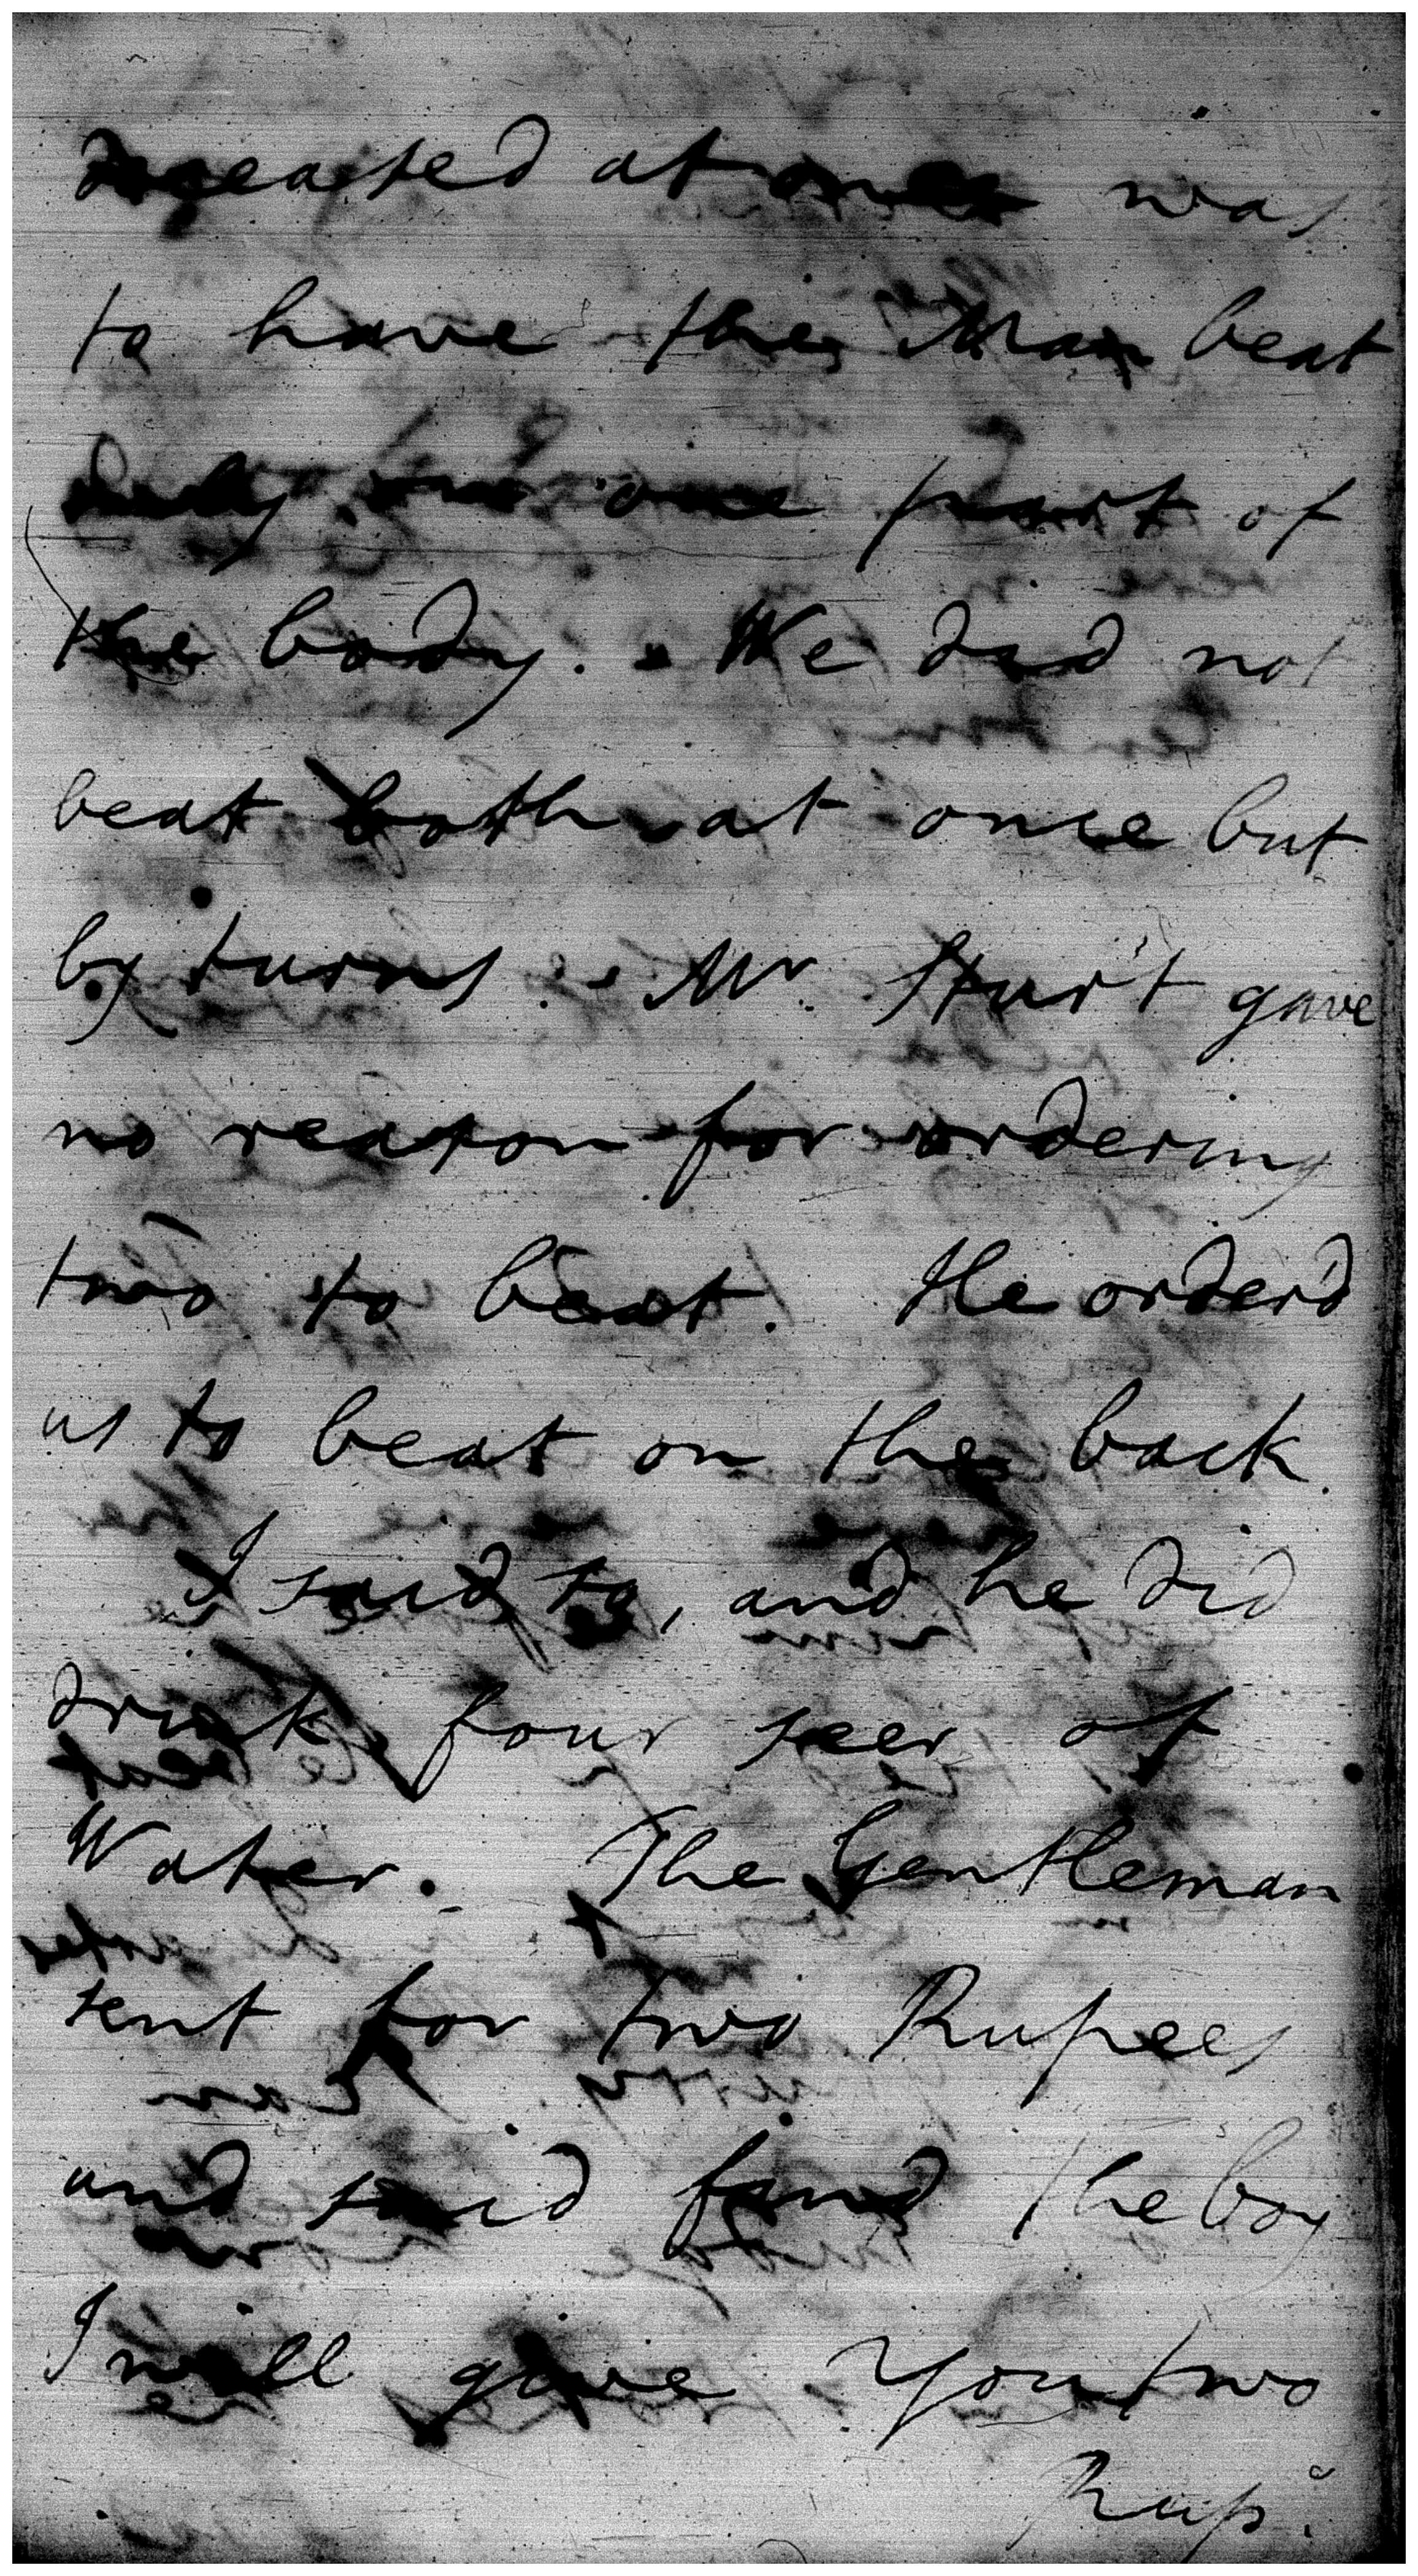 repeated at once was
to have the Man beat
only on one part of
the body. We did not
beat both at once but
by turns. Mr. Sturt gave
no reason for ordering
two to beat. He orderd
us to beat on the back.
I said so, and he did
drink four seer of
Water. The Gentleman
sent for two Rupees
and said find the boy
I will give you two
Rups.